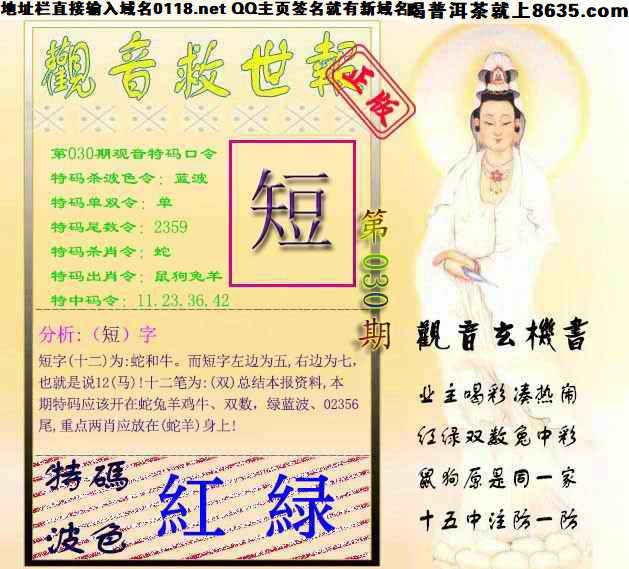 地址栏直接输入域名0118.net QQ主页签名就有新域名
喝普洱茶就上8635.com
觀音救世報
正版
第030期观音特码口令
特码杀波色令：蓝波
特码单双令：单
特码尾数令：2359
特码杀肖令：蛇
特码出肖令：鼠狗兔羊
特中码令：11.23.36.42
短
第030期
分析:（短）字
短字(十二)为:蛇和牛。而短字左边为五,右边为七,
也就是说12(马)!十二笔为:(双)总结本报资料,本
期特码应该开在蛇兔羊鸡牛、双数，绿蓝波、02356
尾,重点两肖应放在(蛇羊)身上!
特碼
波色
紅緑
觀音玄機書
业主喝彩凑热闹
红绿双数兔中彩
鼠狗原是同一家
十五中注防一防